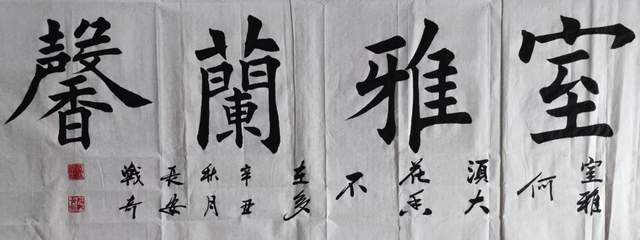 室雅蘭馨
室雅
何
須大
花香
不
在多
辛丑
秋月
長安
戰奇